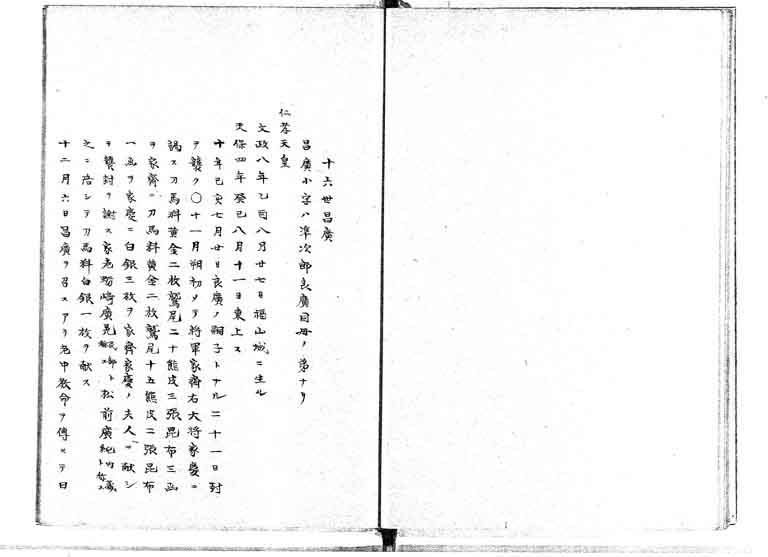 十六世昌廣
昌廣小字ハ準次郎良廣同母ノ弟ナリ
仁孝天皇
文政八年乙酉八月廿七日福山城ニ生ル
天保四年癸巳八月十一日東上ス
十年己亥七月廿日良廣ノ嗣子トナル二十一日封
ヲ襲ク〇十一月朔初メテ将軍家齊右大将家慶ニ
謁ス刀馬料黄金二枚鷲尾二十熊皮三張昆布三函
ヲ家齊ニ刀馬料黄金二枚鷲尾十五熊皮二張昆布
一函ヲ家慶ニ白銀三枚ヲ家齊家慶ノ夫人ニ献シ
ヲ襲封ヲ謝ス家老蠣崎廣晃 民部ト 称ス 松前廣純 内蔵 ト称ス
之ニ陪シテ刀馬料白銀一枚ヲ献ス
十二月六日昌廣ヲ召スアリ老中教命ヲ傳ヘテ曰